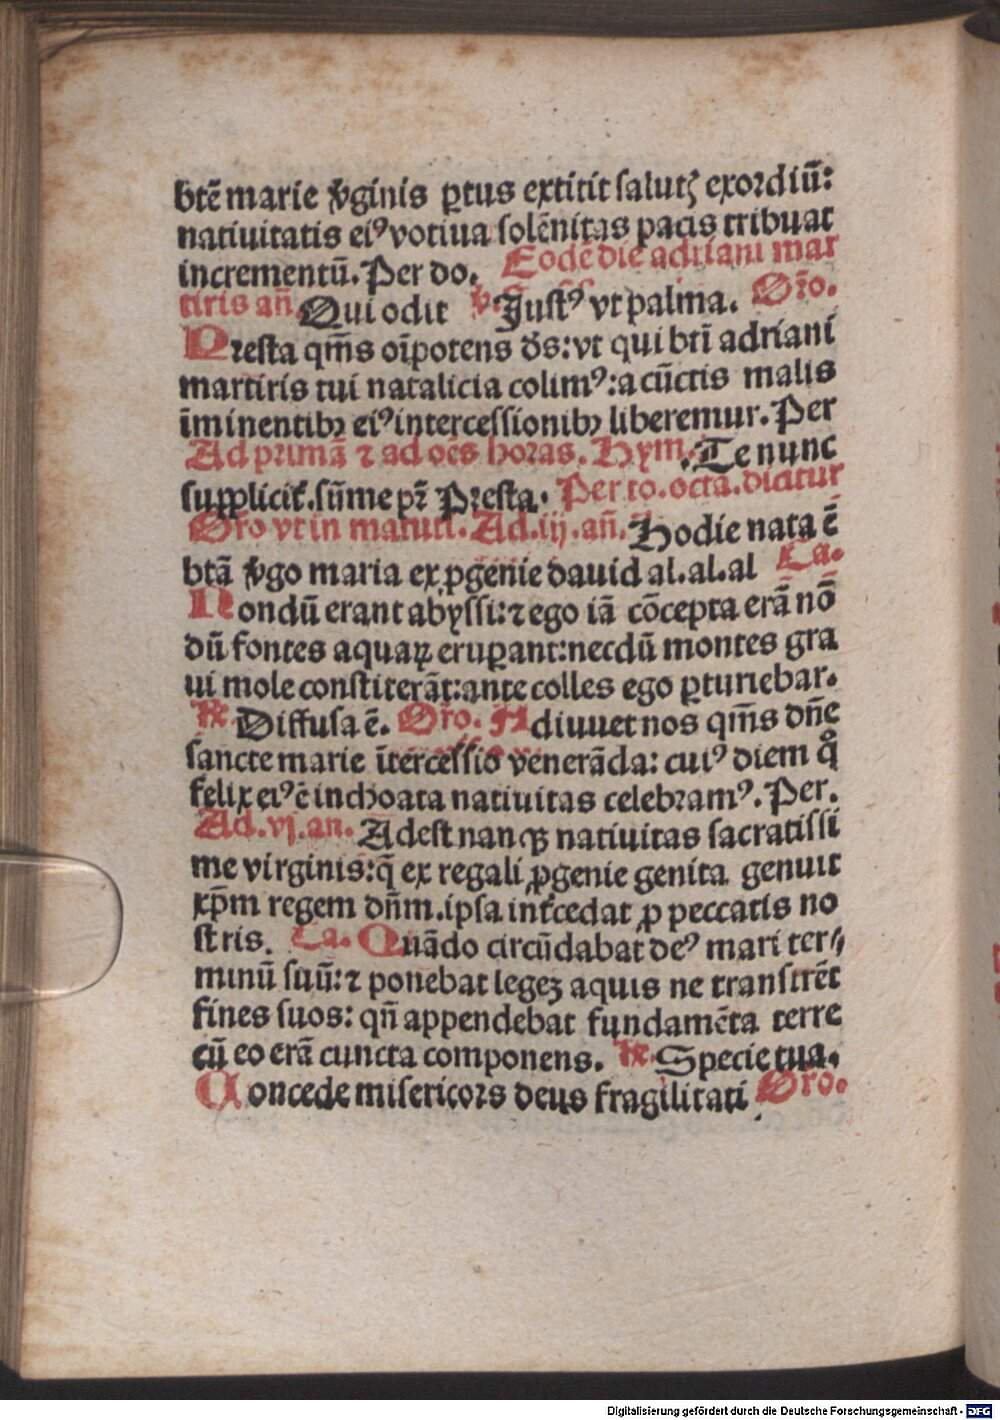 btē marie v̾ginis ꝑtus extitit salutꝭ exordiū:
natiuitatis eiꝰ votiua solēnitas pacis tribuat
incrementū. Per do. Eodē die adriani mar
tiris añ. Qui odit v̾. Justꝰ vt palma. Or̄o.
Presta qm̄s oīpotens d̄s: vt qui btī adriani
martiris tui natalicia colimꝰ: a cūctis malis
īminentibꝫ eiꝰ intercessionibꝫ liberemur. Per
Ad primā ⁊ ad oēs horas. Hym. Te nunc
supplicit̾. sūme pr̄ Presta. Per to. octa. dicitur
Or̄o vt in matuti. Ad. iij. añ. Hodie nata ē
btā v̾go maria ex ꝓgenie dauid al. al. al Ca.
Nondū erant abyssi: ⁊ ego iā cōcepta erā nō
dū fontes aquaꝝ eruꝑant: necdū montes gra
ui mole constiterāt: ante colles ego ꝑturiebar.
℞. Diffusa ē. Or̄o. Adiuuet nos qm̄s dn̄e
sancte marie ītercessio venerāda: cuiꝰ diem qͦ
felix eiꝰ ē inchoata natiuitas celebramꝰ. Per.
Ad. vj. an. Adest nanqꝫ natiuitas sacratissi
me virginis: q̄ ex regali ꝓgenie genita genuit
xp̄m regem dn̄m. ipsa int̾cedat ꝓ peccatis no
stris. Ca. Quādo circūdabat deꝰ mari ter⸗
minū suū: ⁊ ponebat legeȝ aquis ne transirēt
fines suos: qn̄ appendebat fundamēta terre
cū eo erā cuncta componens. ℞. Specie tua.
Concede misericors deus fragilitati Or̄o.
Digitalisierung gefördert durch die Deutsche Forschungsgemeinschaft - DFG